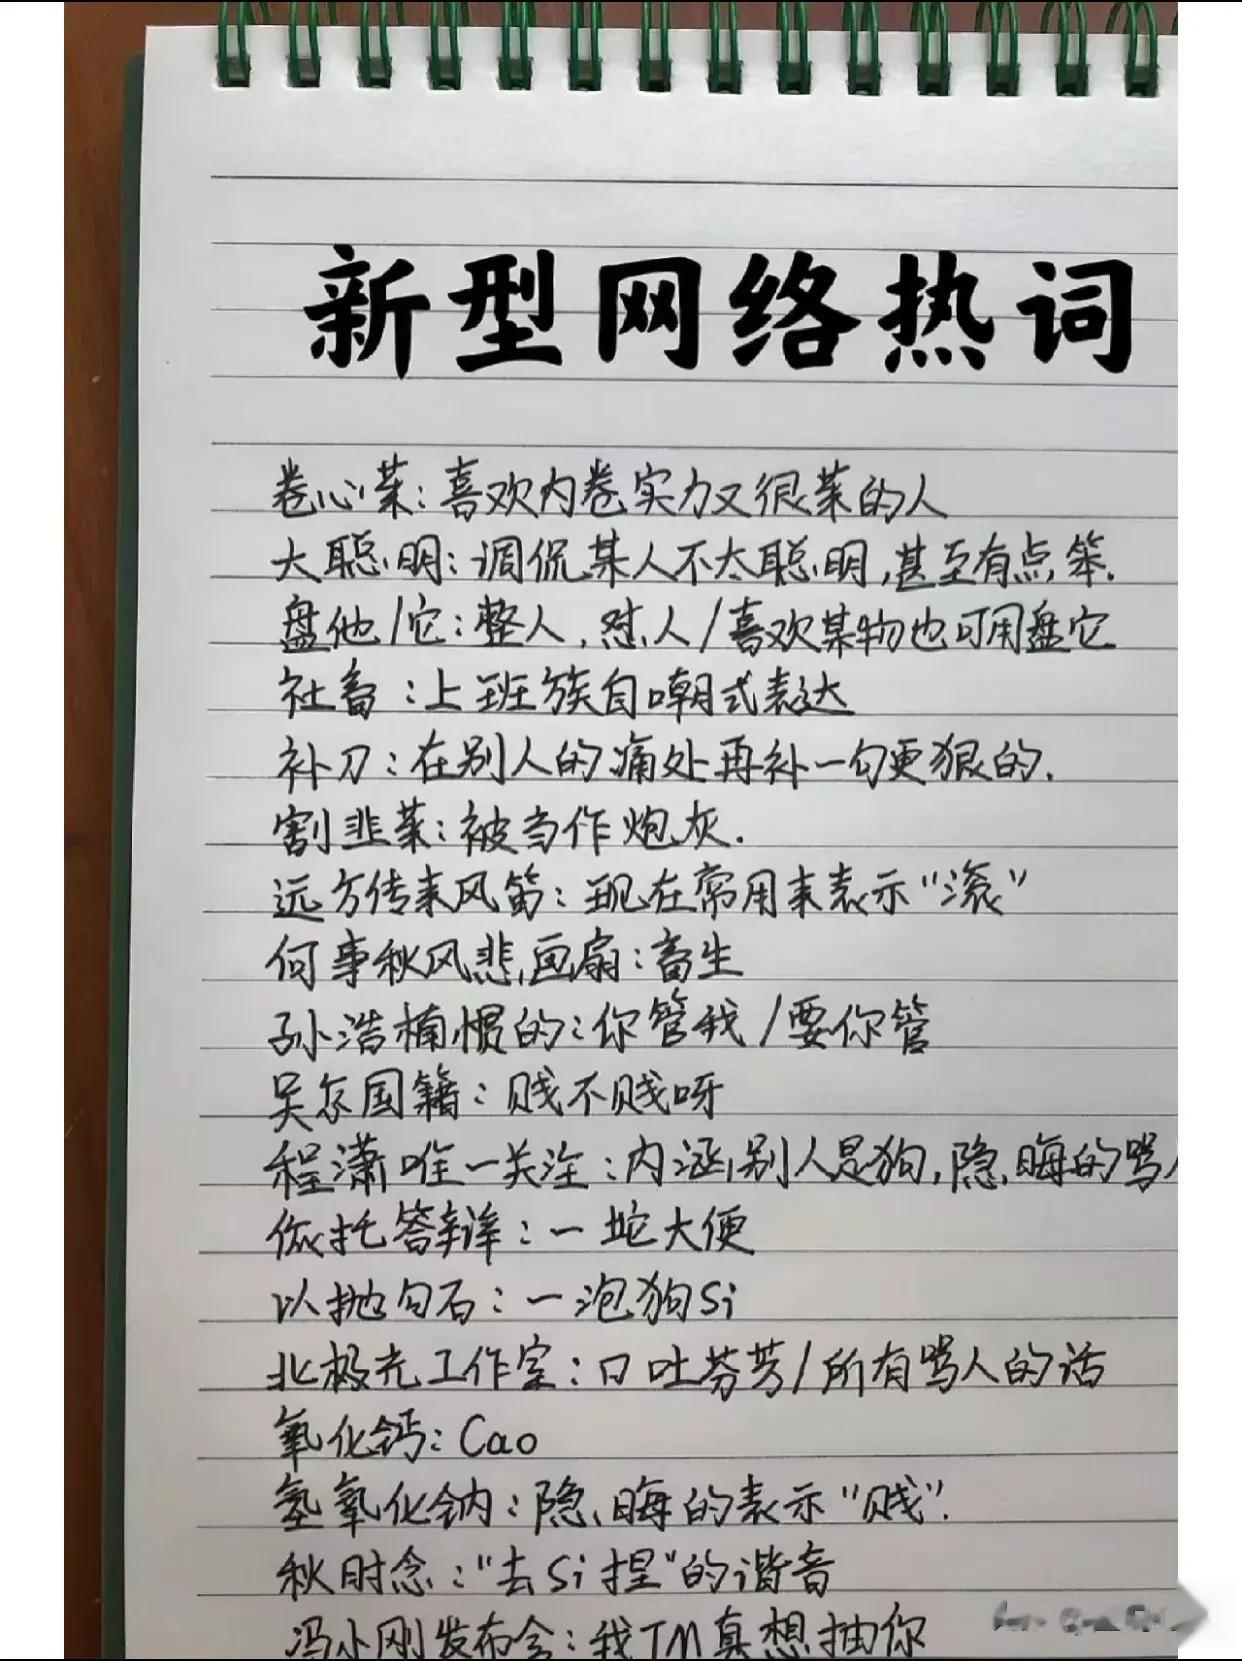 新型网络热词
卷心菜：喜欢内卷实力又很菜的人
大聪明：调侃某人不太聪明，甚至有点笨.
盘他/它：整人，怼人/喜欢某物也可用盘它
社畜：上班族自嘲式表达
补刀：在别人的痛处再补一句更狠的.
割韭菜：被当作炮灰.
远方传来风笛：现在常用来表示“滚”
何事秋风悲画扇：畜生
孙浩楠惯的：你管我/要你管
吴尔国籍：贱不贱呀
程潇唯一关注：内涵别人是狗，隐晦的骂人
依托答辩：一坨大便
以抛勾石：一泡狗Si
北极光工作室：口吐芬芳/所有骂人的话
氧化钙：Cao
氢氧化钠：隐晦的表示“贱”.
秋时念：“去Si捏”的谐音
冯小刚发布会：我TM真想抽你